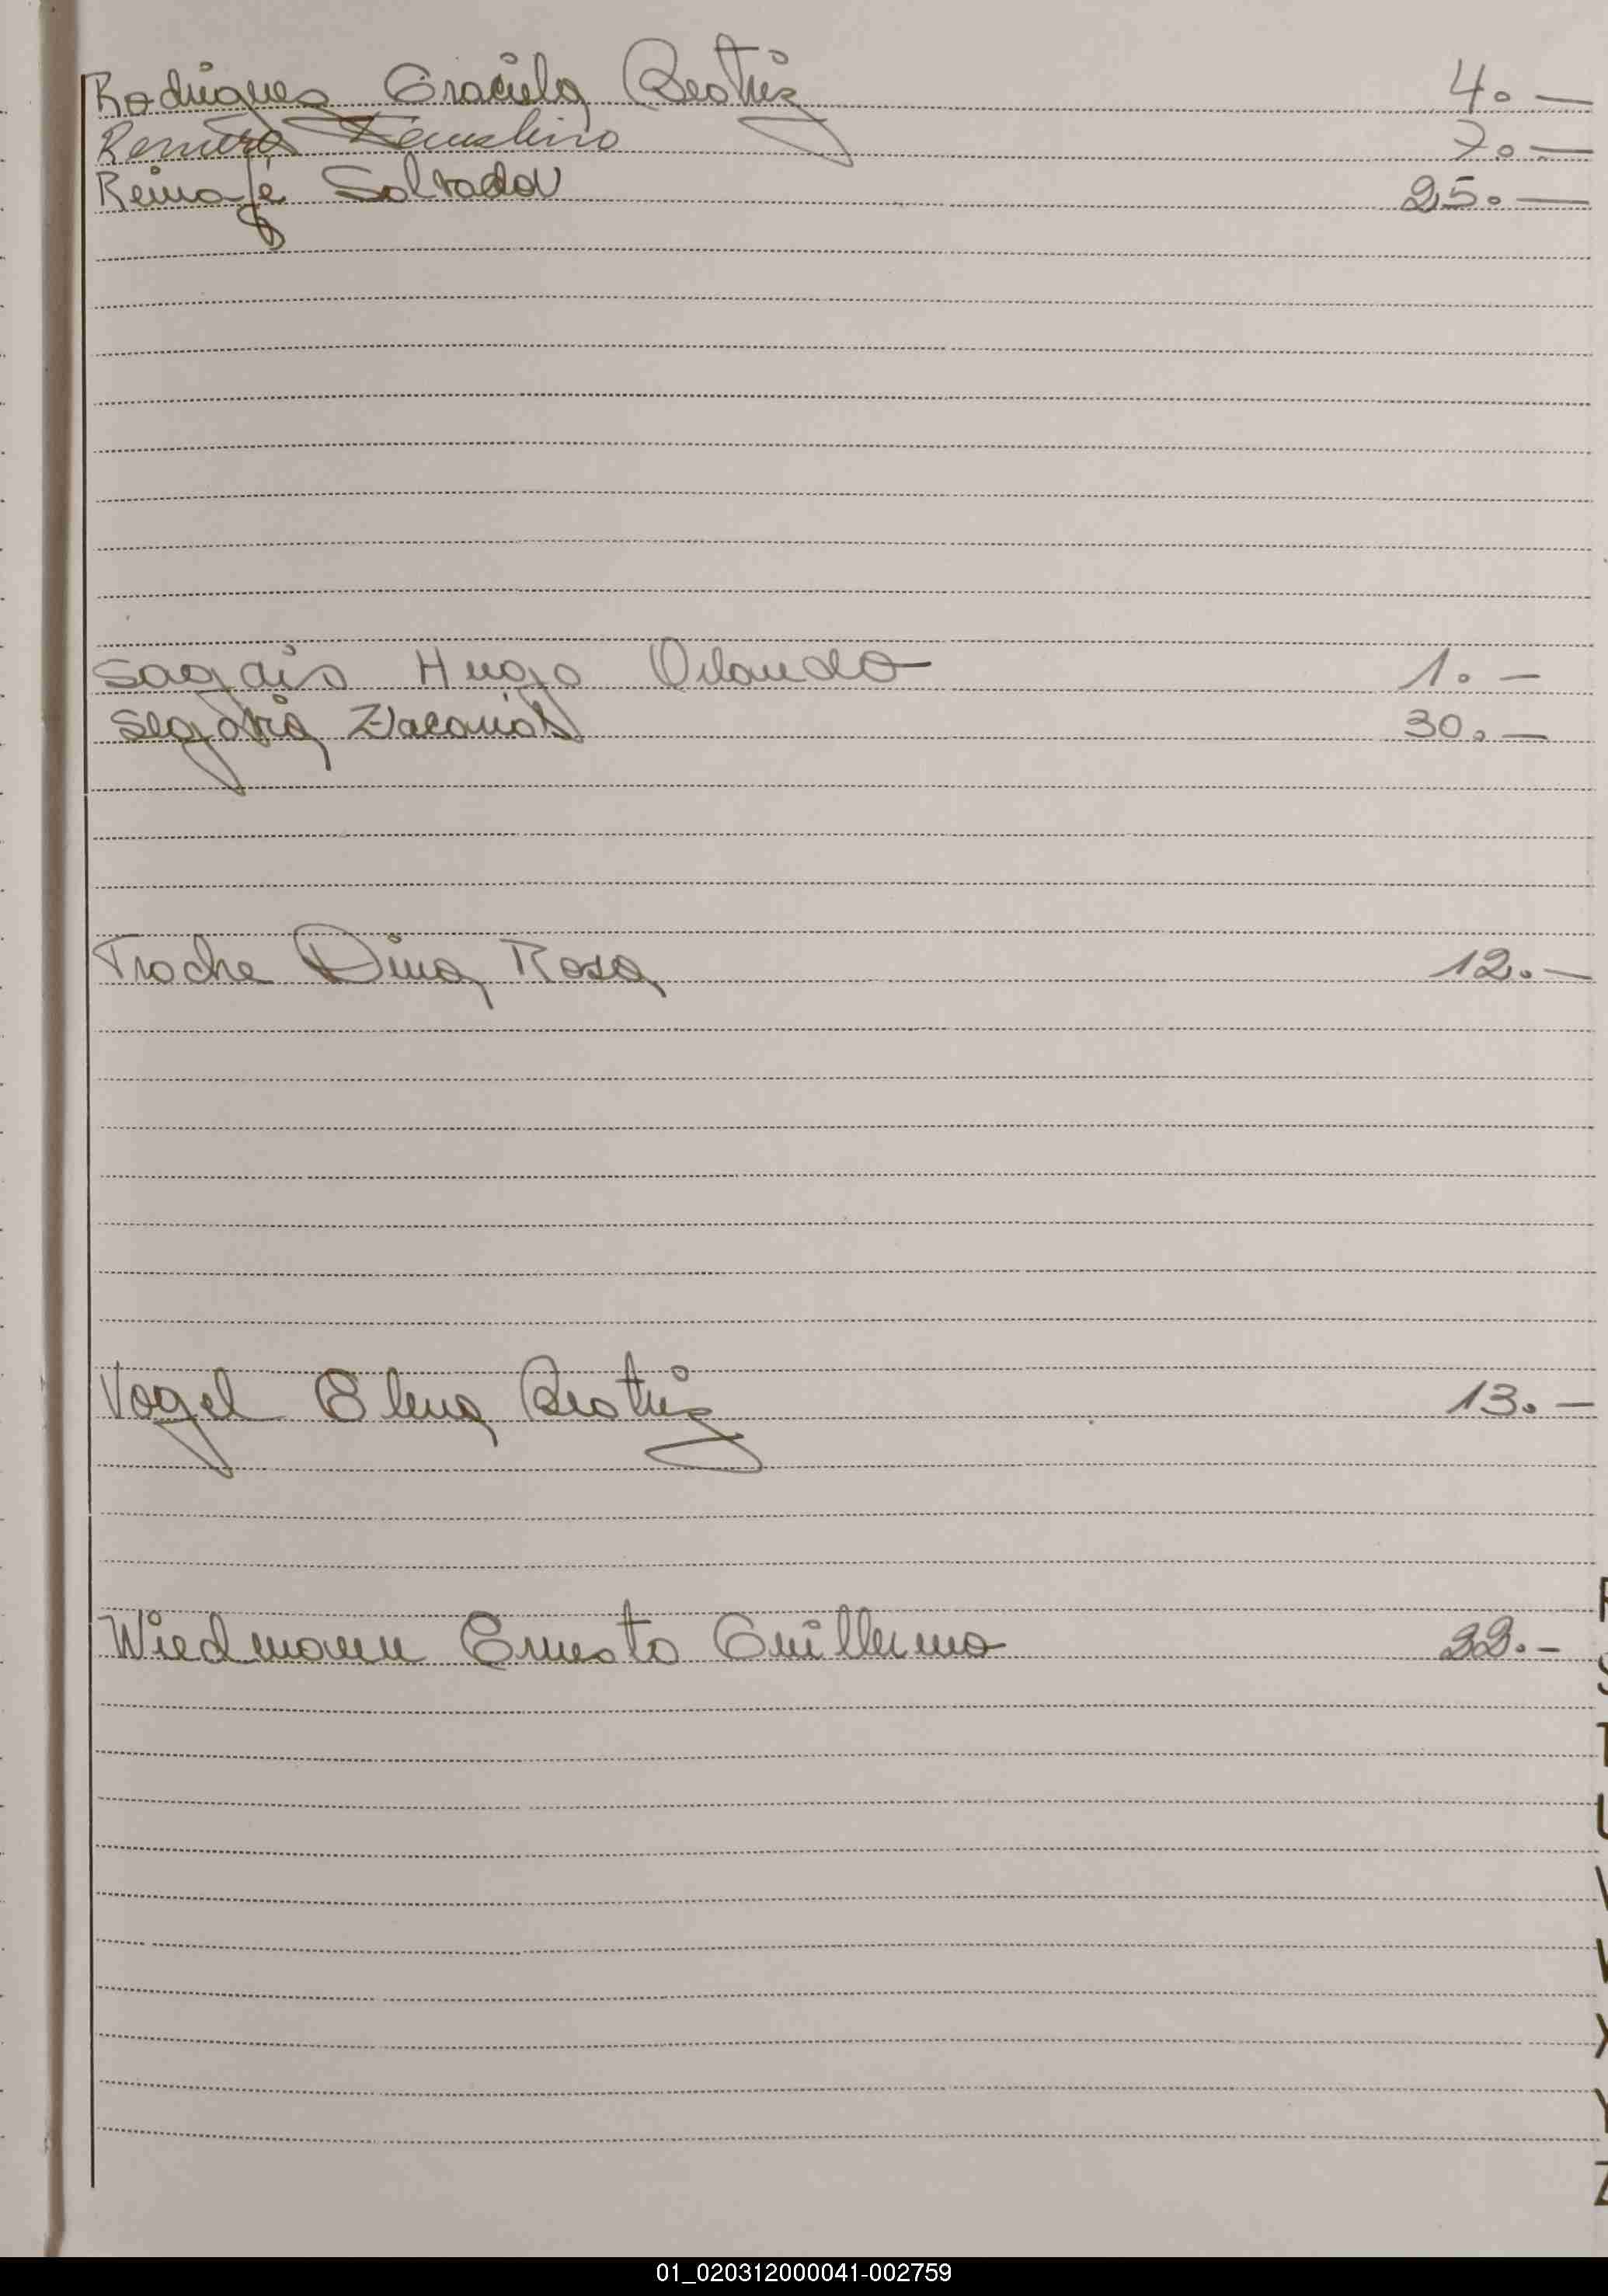 Rodrigues Graciela Beatriz 4.—
Ramírez Faustino 7.—
Reinafé Salvador 25.—
Sagais Hugo Orlando 1.—
Segovia Zacarías 30.—
Troche Dina Rosa 12.—
Vogel Elena Beatriz 13.—
Wiedmann Ernesto Guillermo
T
X
Y
Z
01_020312000041-002759